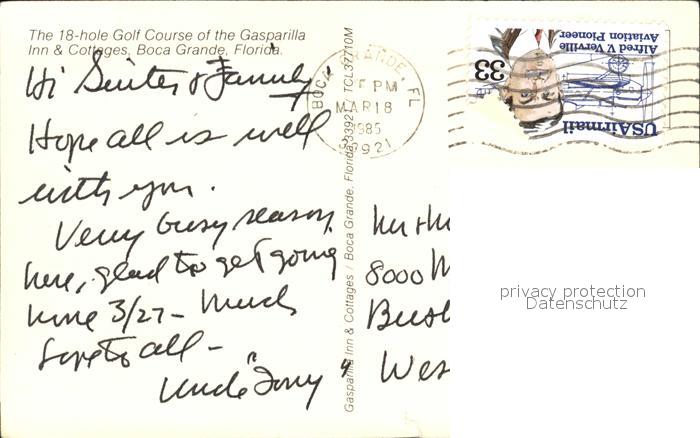 The 18-hole Golf Course of the Gasparilla
Inn & Cottages, Boca Grande, Florida.
Hi Sinter & Family
Hope all is well
with you.
Very busy season
here, glad to get going
home 3/27 - Much
Love to all -
Uncle Tony
Gasparilla Inn & Cottages / Boca Grande, Florida 33921 / TCL37710M
BOCA GRANDE, FL
PM
MAR 18
1985
33921
Alfred V. Verville
Aviation Pioneer
33
USAirmail
8000
Wes
privacy protection
Datenschutz